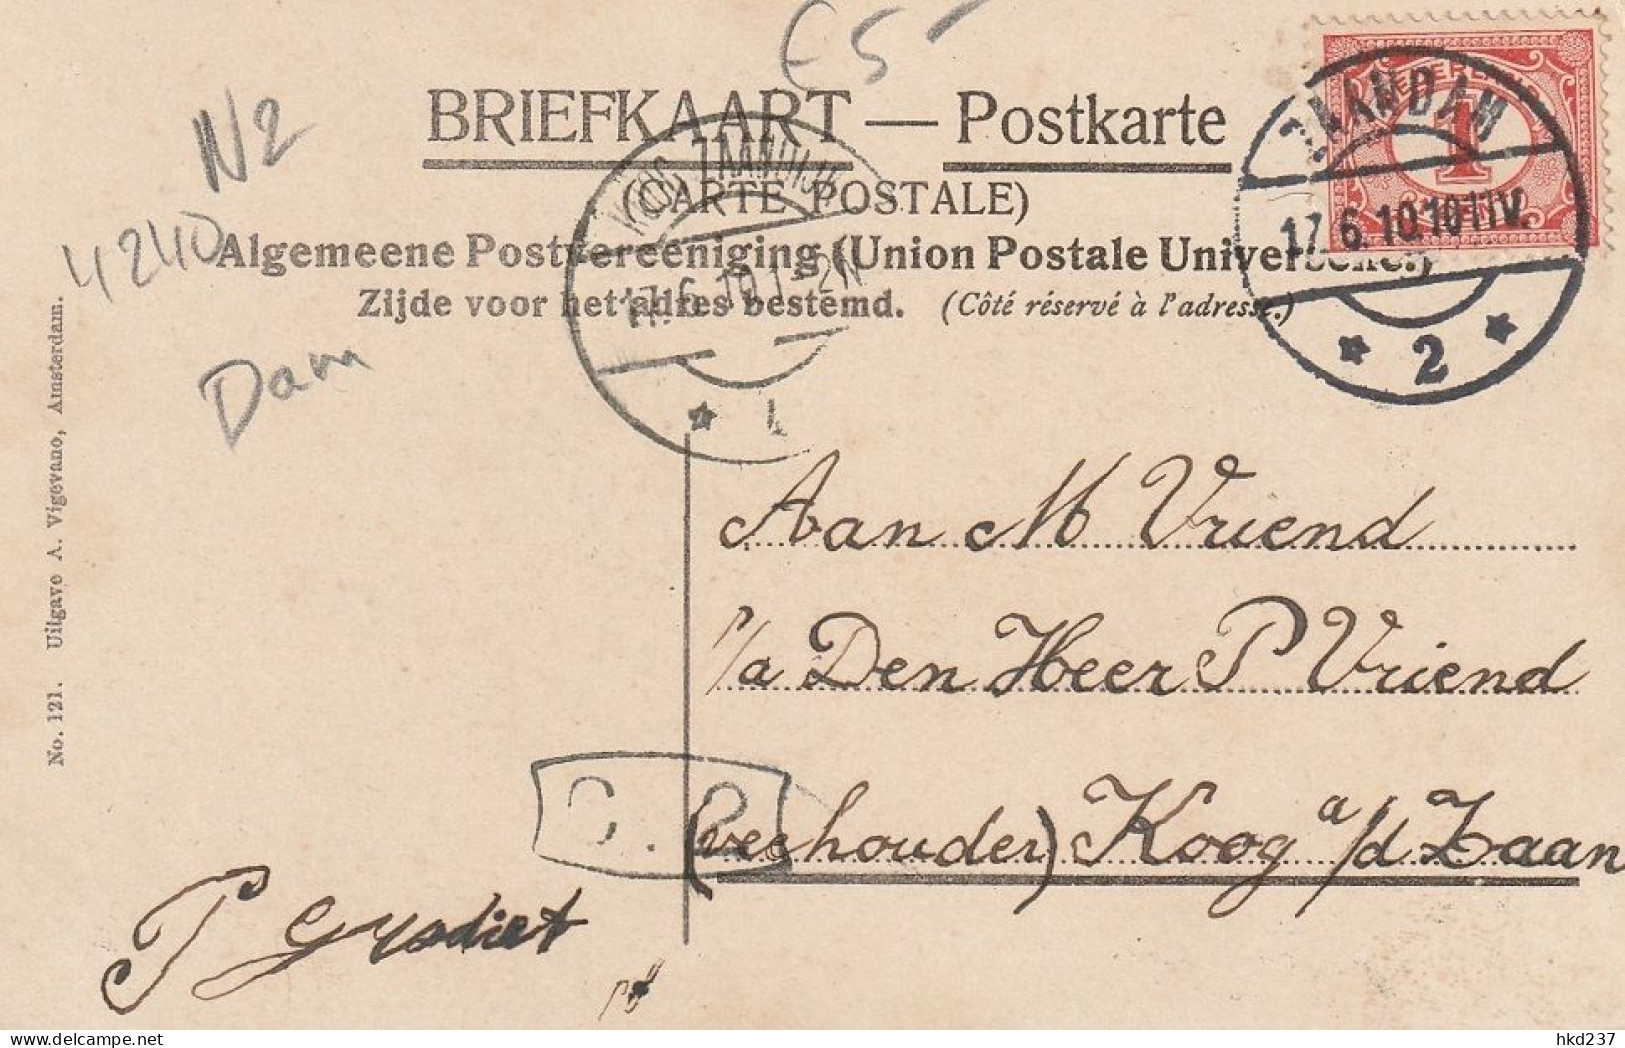 €5-
N2
4240
Dam
BRIEFKAART — Postkarte
(CARTE POSTALE)
Algemeene Postvereeniging (Union Postale Universelle.)
Zijde voor het adres bestemd. (Côté réservé à l'adresse.)
NEDERLAND
1
ZAANDAM
17.6.10.10-11V.
2
KOOG ZAANDIJK
17.6.10.1-2N
1
No. 121. Uitgave A. Vigevano, Amsterdam.
Aan M Vriend
p/a Den Heer P Vriend
(veehouder) Koog a/d Zaan
P
hkd237